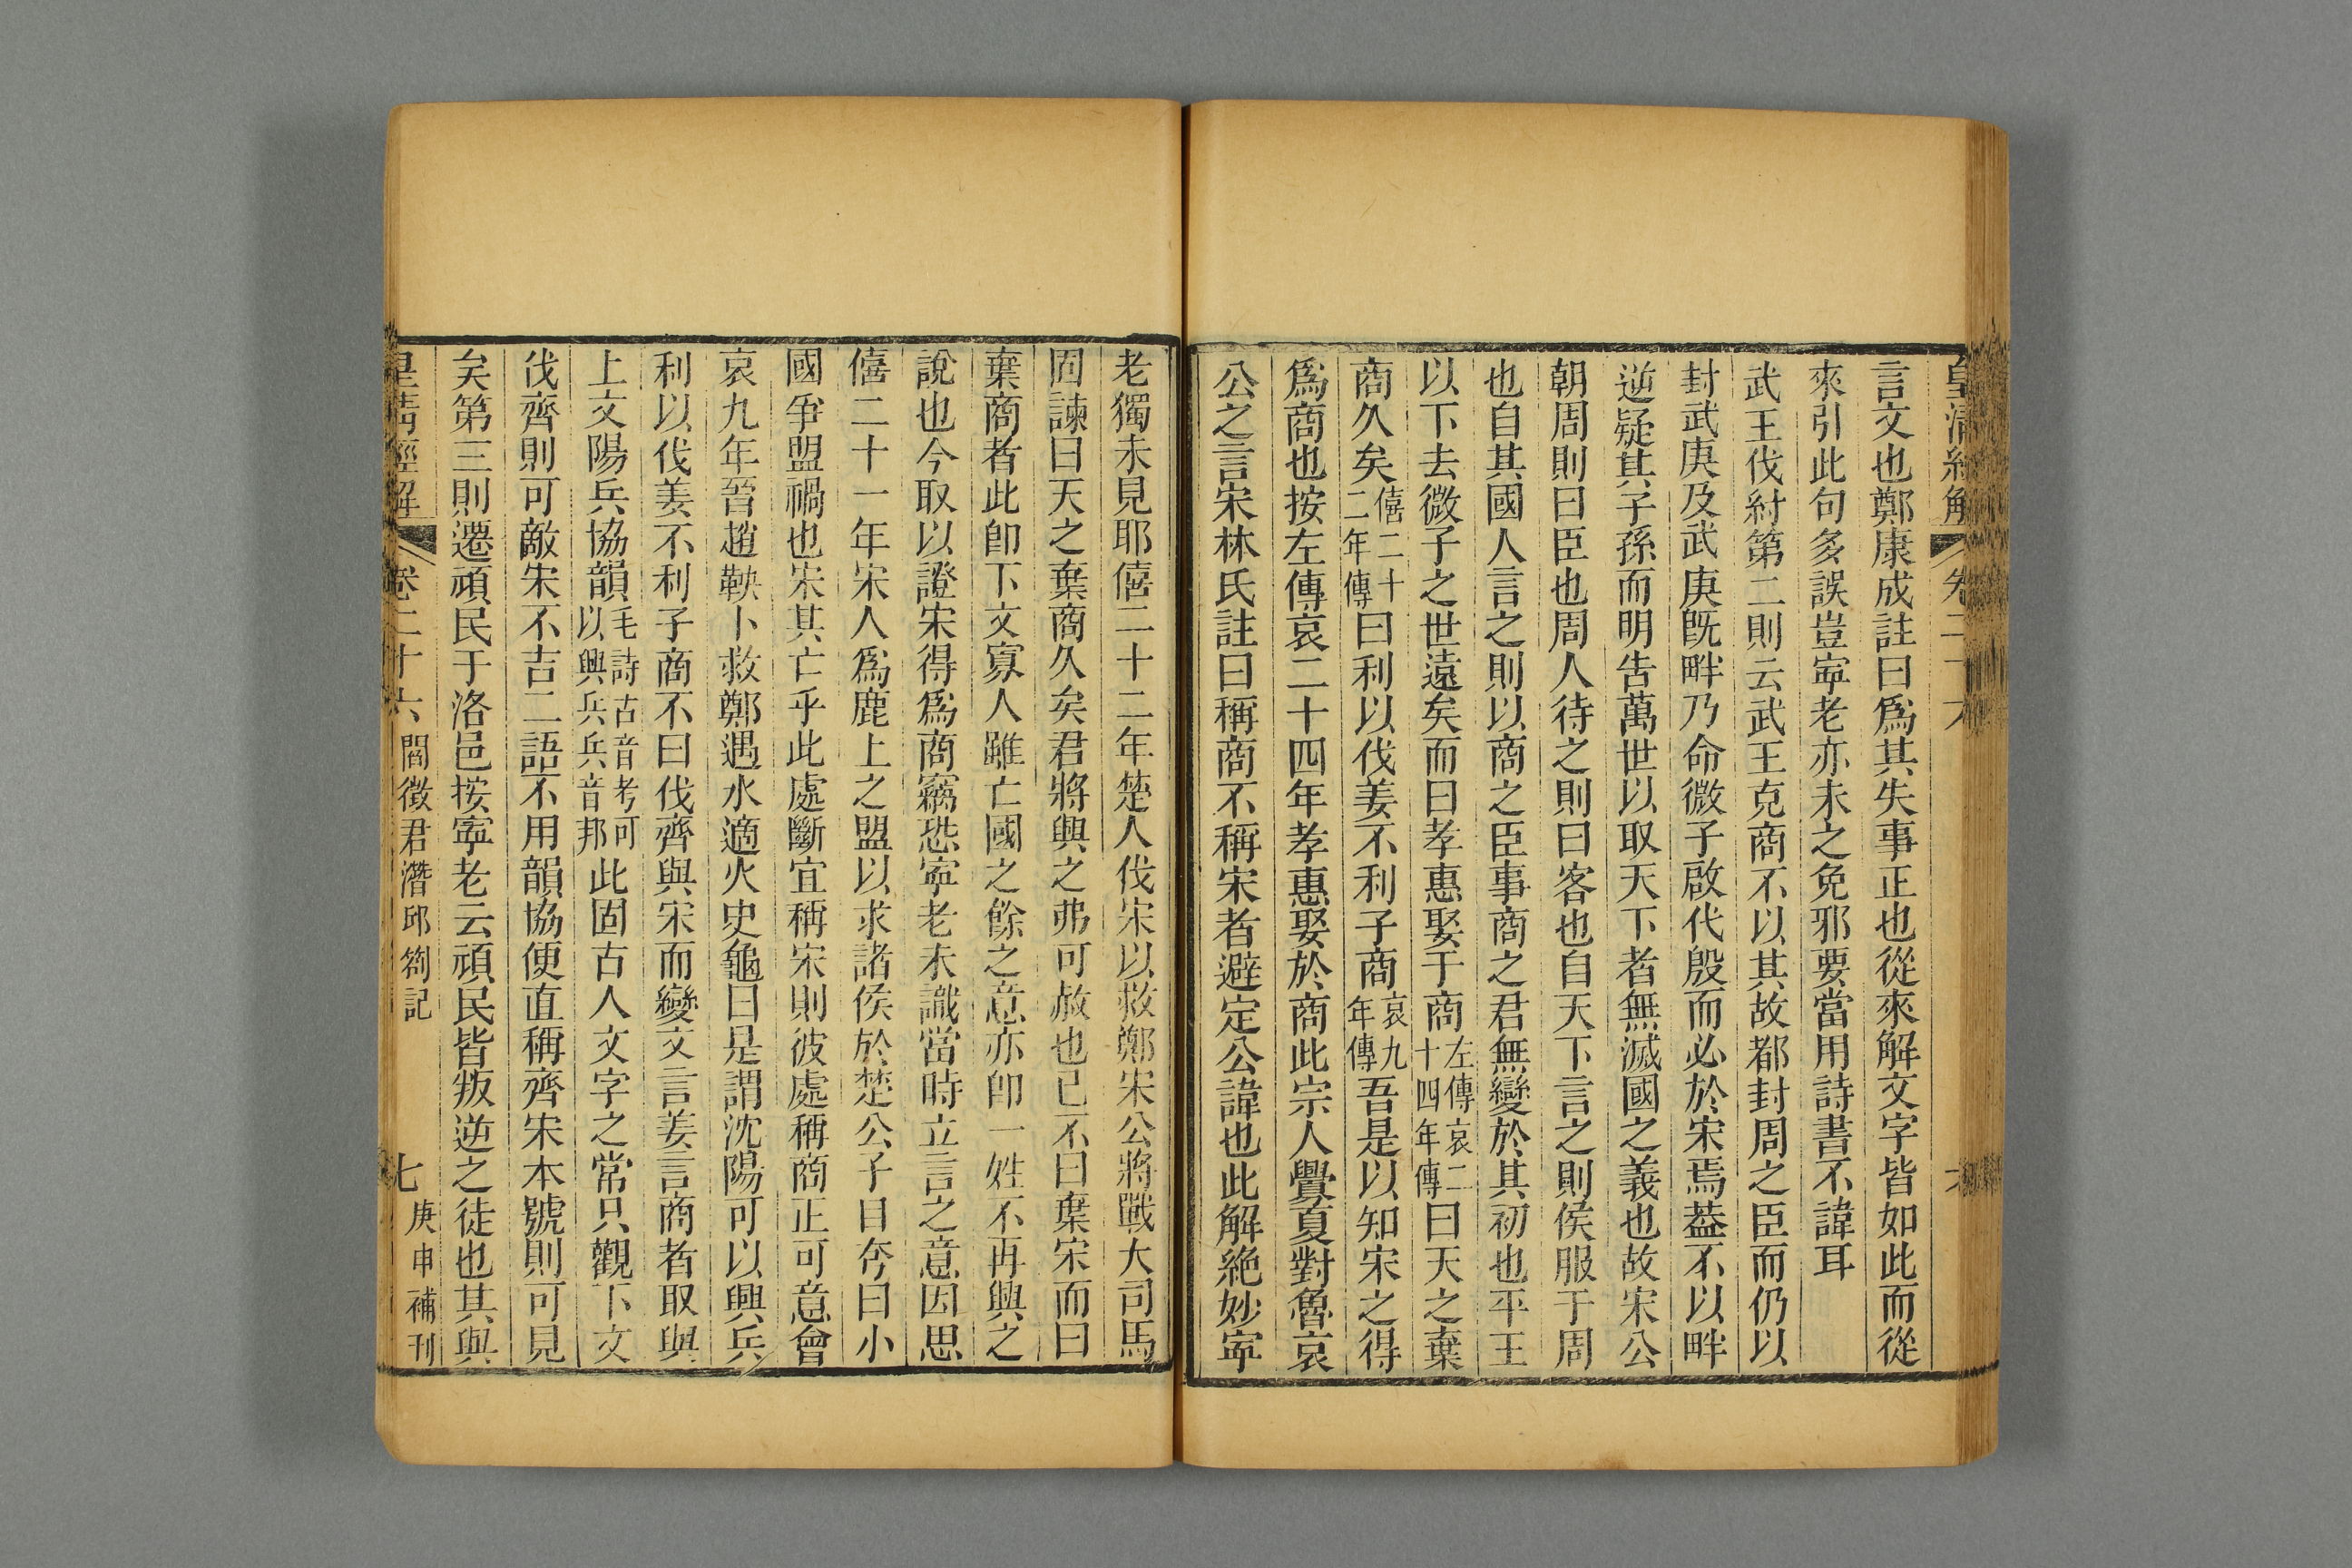 皇清經解 卷二十六 六
言文也鄭康成註曰爲其失事正也從來解文字皆如此而從
來引此句多誤豈寜老亦未之免邪要當用詩書不諱耳
武王伐紂第二則云武王克商不以其故都封周之臣而仍以
封武庚及武庚旣畔乃命微子啟代殷而必於宋焉葢不以畔
逆疑其子孫而明告萬世以取天下者無滅國之義也故宋公
朝周則曰臣也周人待之則曰客也自天下言之則侯服于周
也自其國人言之則以商之臣事商之君無變於其初也平王
以下去微子之世遠矣而曰孝惠娶于商左傳哀二十四年傳曰天之棄
商久矣僖二十二年傳曰利以伐姜不利子商哀九年傳吾是以知宋之得
爲商也按左傳哀二十四年孝惠娶於商此宗人釁夏對魯哀
公之言宋林氏註曰稱商不稱宋者避定公諱也此解絶妙寜
老獨未見耶僖二十二年楚人伐宋以救鄭宋公將戰大司馬
固諫曰天之棄商久矣君將興之弗可赦也已不曰棄宋而曰
棄商者此卽下文寡人雖亡國之餘之意亦卽一姓不再興之
說也今取以證宋得爲商竊恐寜老未識當時立言之意因思
僖二十一年宋人爲鹿上之盟以求諸侯於楚公子目夸曰小
國爭盟禍也宋其亡乎此處斷宜稱宋則彼處稱商正可意會
哀九年晉趙鞅卜救鄭遇水適火史龜曰是謂沈陽可以興兵
利以伐姜不利子商不曰伐齊與宋而變文言姜言商者取與
上文陽兵協韻毛詩古音考可以興兵兵音邦此固古人文字之常只觀下文
伐齊則可敵宋不吉二語不用韻協便直稱齊宋本號則可見
矣第三則遷頑民于洛邑按寜老云頑民皆叛逆之徒也其與
皇清經解 卷二十六 閻徵君潛邱劄記 七 庚申補刊